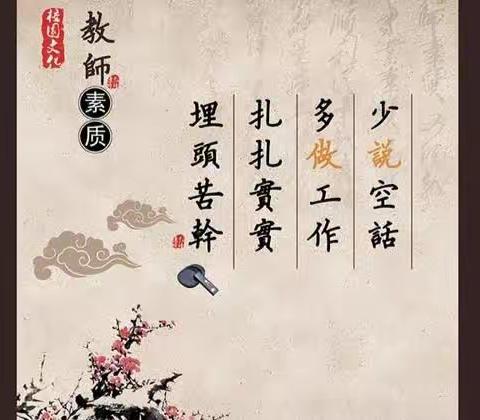 校园文化
教師
素质
少說空話
多做工作
扎扎實實
埋頭苦幹